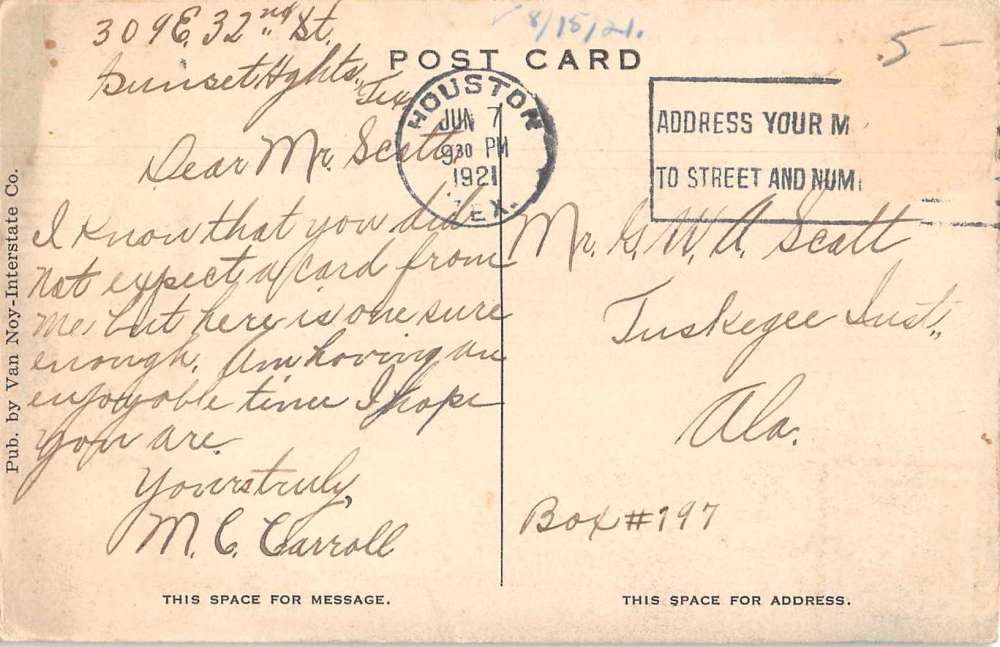 309 E. 32nd St.
Sunset Hghts, Tex.
8/15/21.
5 —
POST CARD
HOUSTON
JUN 7
930 PM
1921
TEX.
ADDRESS YOUR M
TO STREET AND NUM
Pub. by Van Noy-Interstate Co.
Dear Mr. Scott,
I know that you did
not expect a card from
me, but here is one sure
enough. Am having an
enjoyable time I hope
you are.
Yours truly,
M. C. Carroll
Mr. G. W. A. Scott
Tuskegee Inst.,
Ala.
Box #197
THIS SPACE FOR MESSAGE.
THIS SPACE FOR ADDRESS.